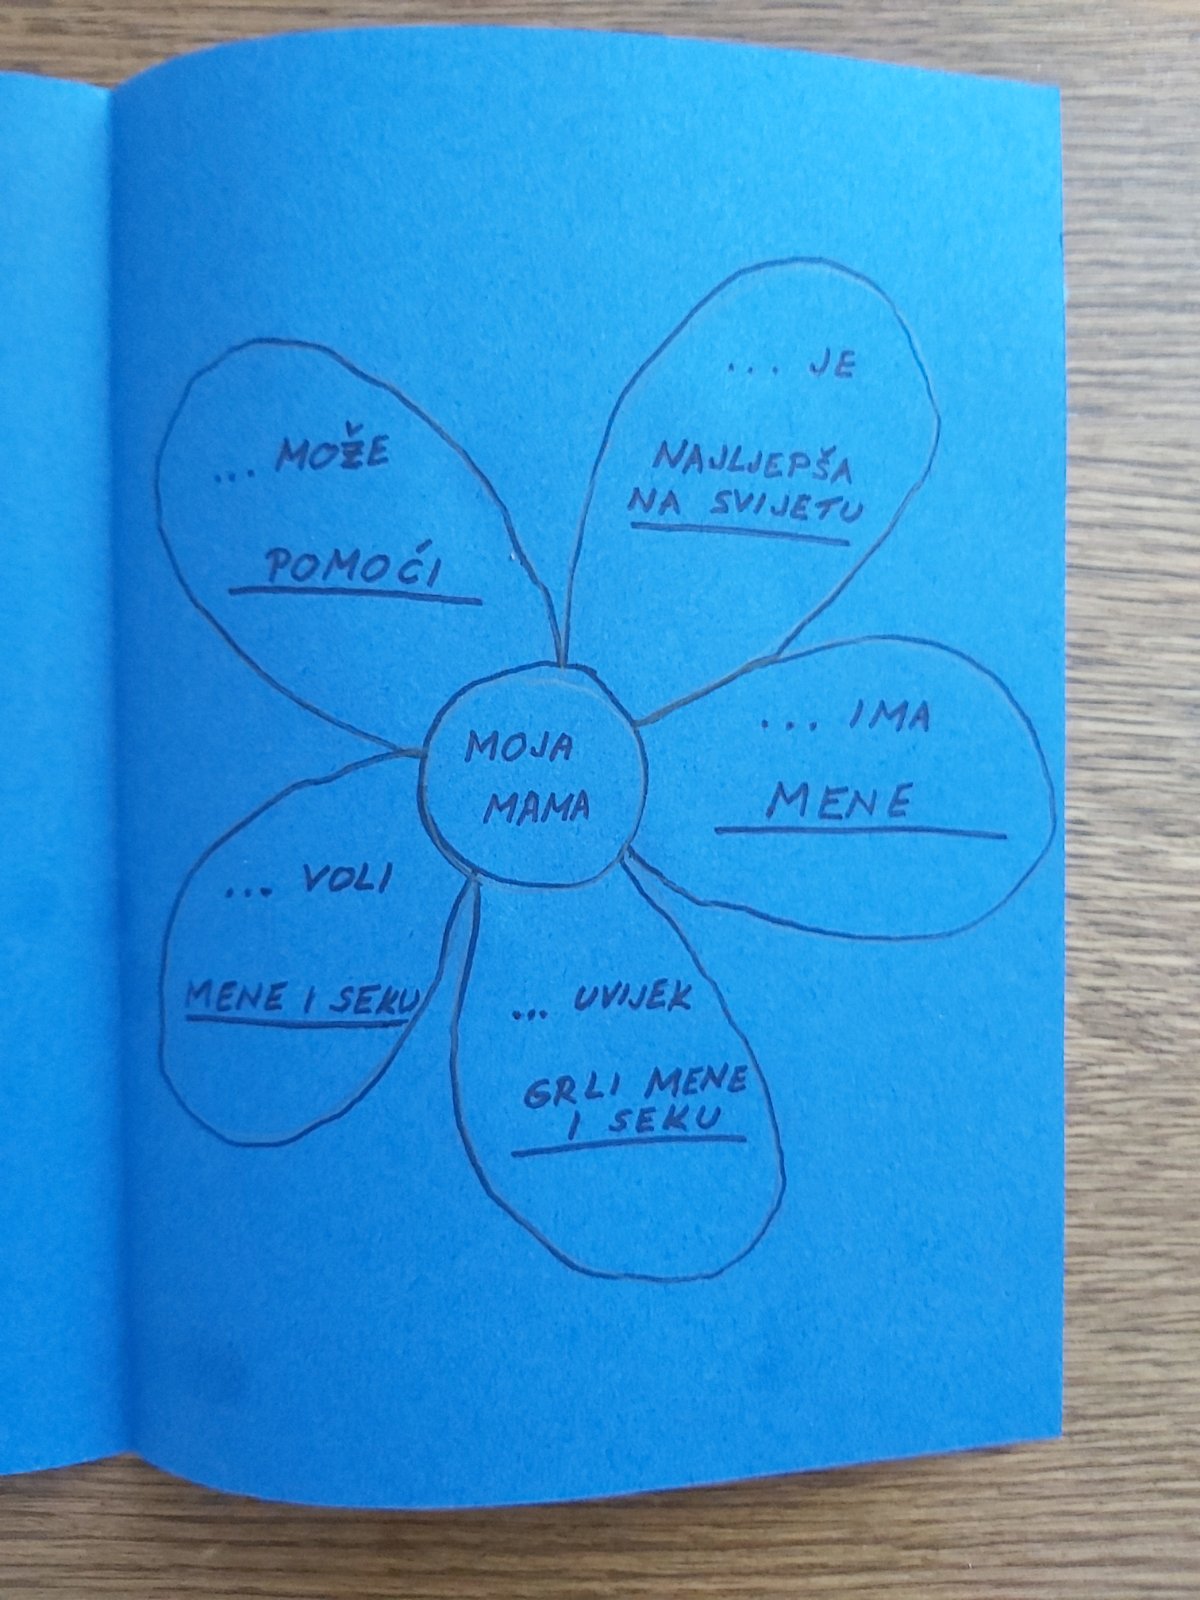 MOJA
MAMA
... MOŽE
POMOĆI
... JE
NAJLJEPŠA
NA SVIJETU
... IMA
MENE
... UVIJEK
GRLI MENE
I SEKU
... VOLI
MENE I SEKU